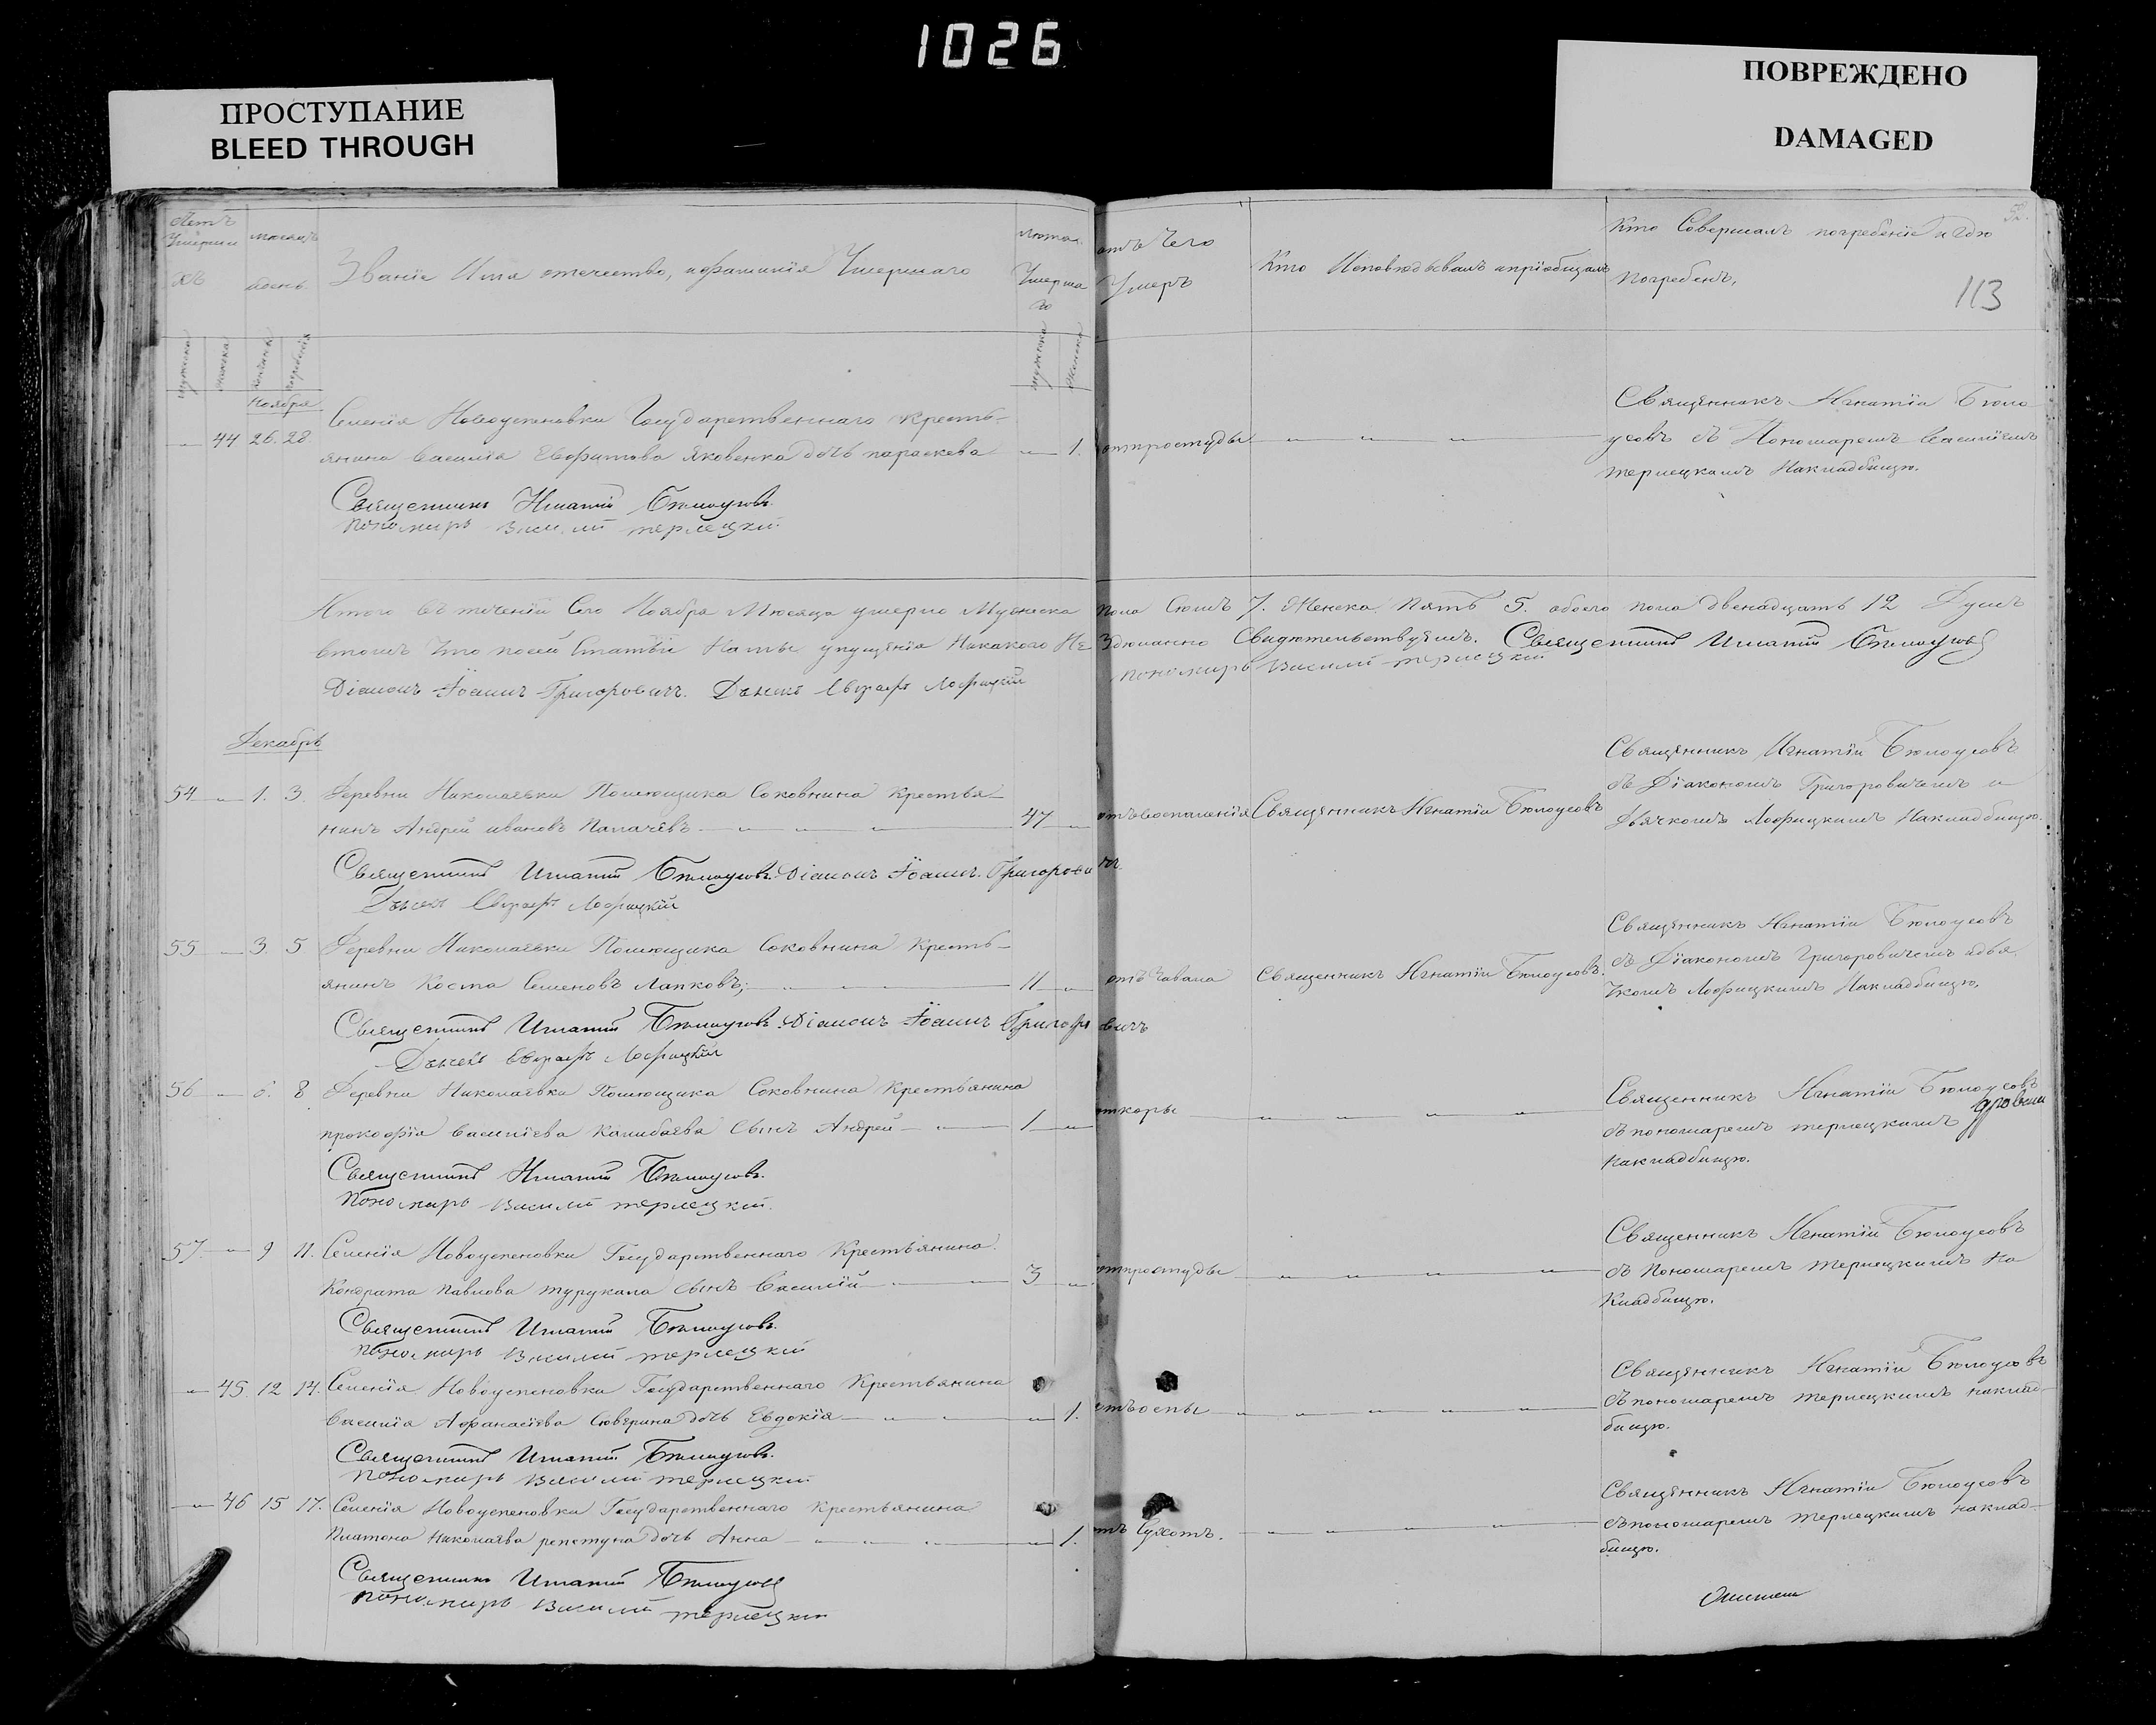 1026
ПРОСТУПАНИЕ
BLEED THROUGH
ПОВРЕЖДЕНО
DAMAGED
113
Умерших
день
Званіе Имя отечество, ифамилія Умершаго
отъ Чего
Умеръ
Кто Исповѣдывалъ ипріобщалъ
Кто Совершалъ погребеніе и гдѣ
Погребенъ,
Ноября
44 26. 28 Селенія Новоуспеновки Государственнаго Кресть-
янина Василія Яковенка дочь параскева 1. отпростуды
Священникъ Игнатій Бѣлоусовъ съ Пономаремъ Василіемъ
терлецкимъ Накладбищѣ.
Священникъ Игнатій Бѣлоусовъ
Пономарь Василій терлецкій
Итого въ теченіи Сего Ноября Мѣсяца умерло Мужеска Пола Семь 7. Женска Пять 5. обоего пола двенадцать 12 Душъ
втомъ Что посей Статьи упущенія Никакого Не Свидѣтельствуемъ. Священникъ Игнатій Бѣлоусовъ
Пономарь Василій терлецкій
Діаконъ Іоаннъ Григоровичъ.
Декабрь
54 1. 3. Деревни Николаевки Помѣщика Соковнина Крестья-
нинъ Андрей ивановъ 47 отъвоспаленія Священникъ Игнатій Бѣлоусовъ
Священникъ Игнатій Бѣлоусовъ
съ Діакономъ Григоровичемъ и
Дьячкомъ Накладбищѣ.
Священникъ Игнатій Бѣлоусовъ Діаконъ Іоаннъ Григоровичъ
55 3. 5 Деревни Николаевки Помѣщика Соковнина Кресть-
янинъ Косма Семеновъ Лапковъ; 11 Священникъ Игнатій Бѣлоусовъ.
Священникъ Игнатій Бѣлоусовъ
съ Діакономъ Григоровичемъ идья
чкомъ Накладбищѣ.
Священникъ Игнатій Бѣлоусовъ Діаконъ Іоаннъ Григоровичъ
56 6. 8 Деревни Николаевки Помѣщика Соковнина Крестьянина
прокофія Василіева Сынъ Андрей 1 откоры
Священникъ Игнатій Бѣлоусовъ
съпономаремъ терлецкимъ
Накладбищѣ.
Священникъ Игнатій Бѣлоусовъ.
Пономарь Василій терлецкій.
57. 9 11. Селенія Новоуспеновки Государственнаго Крестьянина
Кондрата павлова турукала Сынъ Василій 3 отпростуды
Священникъ Игнатій Бѣлоусовъ
съ Пономаремъ терлецкимъ На
Кладбищѣ.
Священникъ Игнатій Бѣлоусовъ.
Пономарь Василій терлецкій
45 12 14. Селенія Новоуспеновки Государственнаго Крестьянина
Василія Афанасіева дочь Евдокія 1. отъоспы
Священникъ Игнатій Бѣлоусовъ
съпономаремъ терлецкимъ наклад-
бищѣ.
Священникъ Игнатій Бѣлоусовъ.
Пономарь Василій терлецкій
46 15 17. Селенія Новоуспеновки Государственнаго Крестьянина
Платона Николаева репетуна дочь Анна 1.
Священникъ Игнатій Бѣлоусовъ
съпономаремъ терлецкимъ наклад-
бищѣ.
Священникъ Игнатій Бѣлоусовъ
Пономарь Василій терлецкій